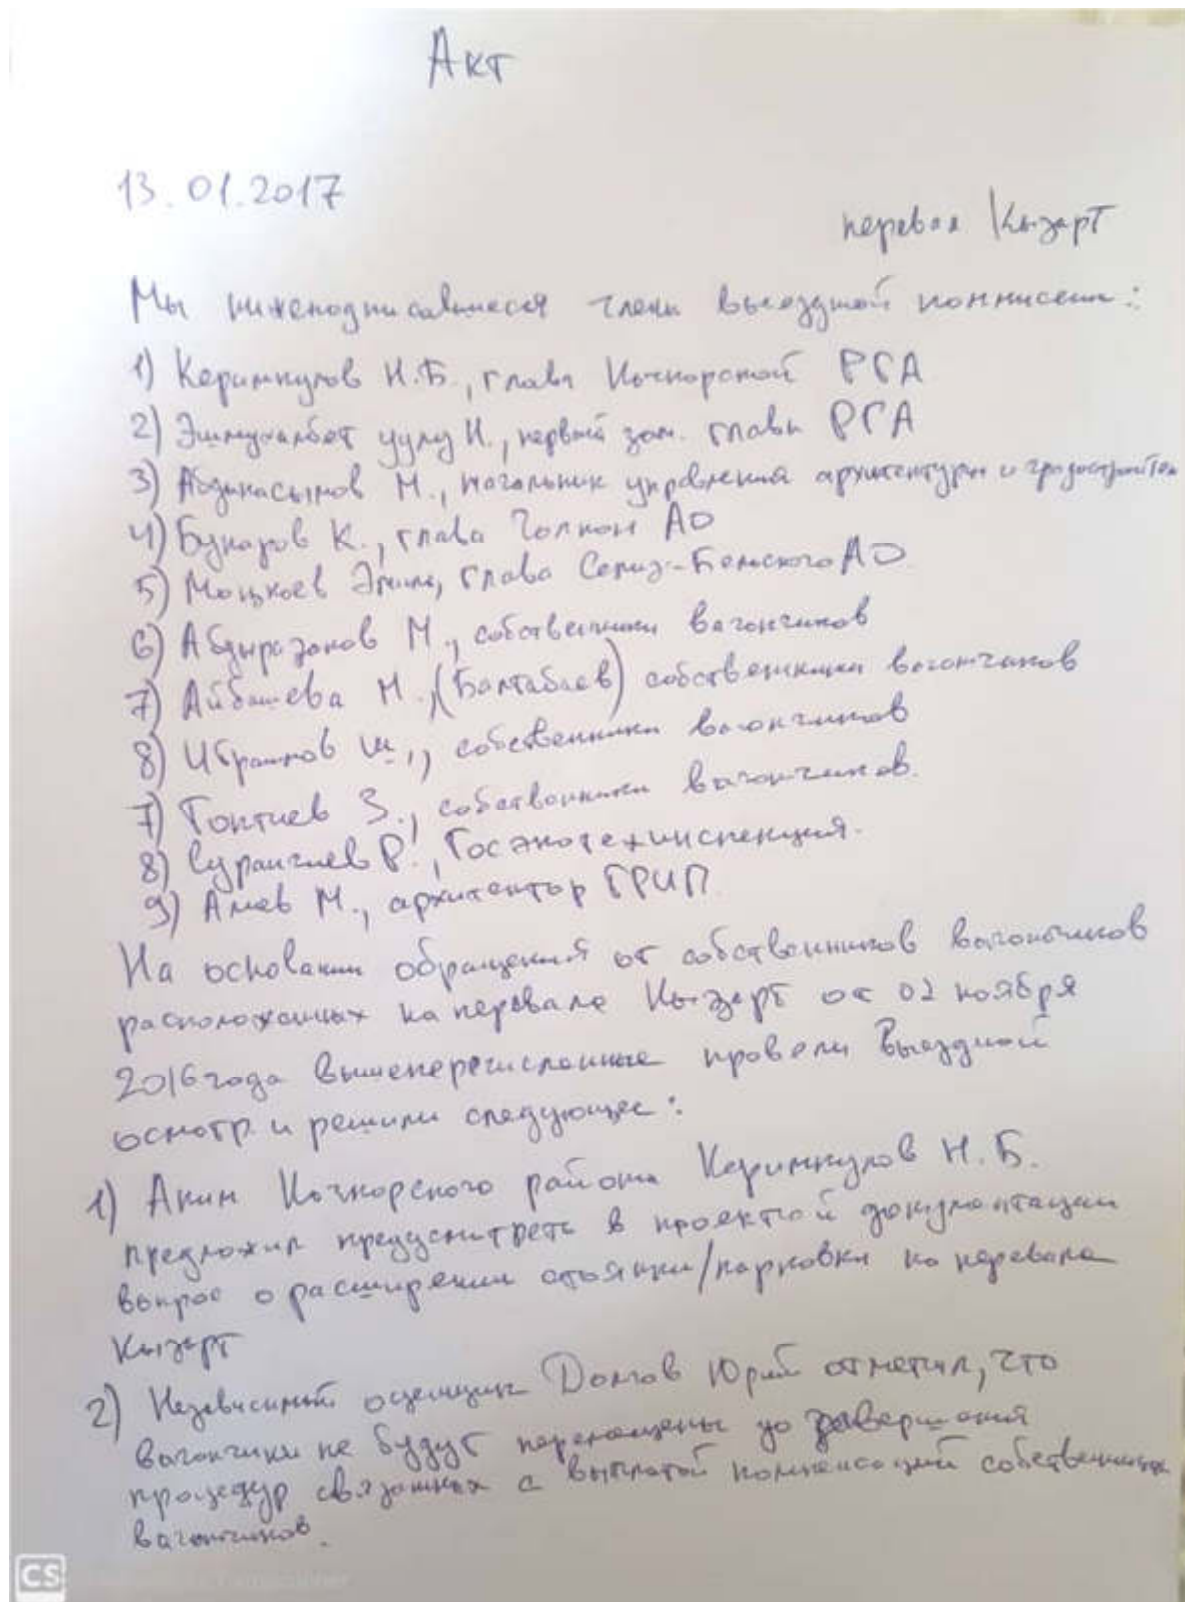 Акт
13.01.2017
перевал Кызарт
Мы нижеподписавшиеся члены выездной комиссии:
1) Керимкулов Н.Б., глава Кочкорской РГА
2) Эшмухамбет уулу Н., первый зам. главы РГА
3) Абдыкасымов М., начальник управления архитектуры и
4) Букаров К., глава Чолпон АО
5) Эмиль, глава Семиз-Бельского АО
6) Абдыразаков М., собственники вагончиков
7) Айбашева М., (Балтабаев) собственники вагончиков
8) Ибраимов Ш., собственники вагончиков
7) Токтиев З., собственники вагончиков.
8) Суранчиев Р., Госэкотехинспекция.
9) Алиев М., архитектор ПРИП
На основании обращения от собственников вагончиков
расположенных на перевале Кызарт от 02 ноября
2016 года вышеперечисленные провели выездной
осмотр и решили следующее:
1) Аким Кочкорского района Керимкулов Н.Б.
предложил предусмотреть в проектной документации
вопрос о расширении стоянки/парковки на перевале
Кызарт
2) Независимый оценщик Долгов Юрий отметил, что
вагончики не будут перемещены до завершения
процедур связанных с выплатой компенсаций собственникам
вагончиков.
CS